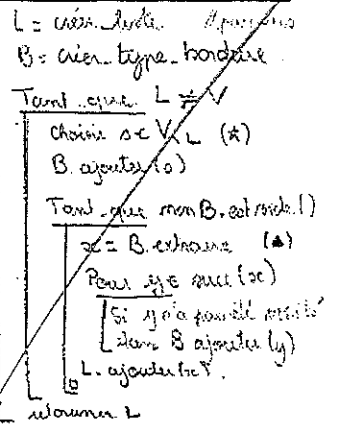 L = créer_liste
B = créer_type_bordure
Tant_que L ≠ V
choisir s ∈ V \ L (*)
B.ajouter(s)
Tant_que non B.est vide()
x = B.extraire (▲)
Pour y ∈ succ(x)
Si y n'a pas été visité
dans B ajouter(y)
L.ajouter(x).
retourner L